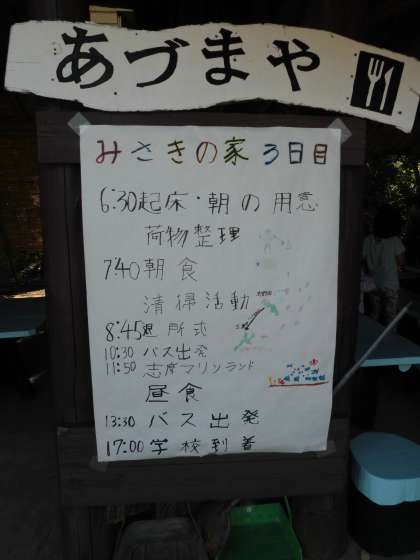 あづまや
みさきの家 3日目
6:30起床・朝の用意
荷物整理
7:40朝食
清掃活動
8:45退所式
10:30 バス出発
11:50 志摩マリンランド
昼食
13:30 バス出発
17:00 学校到着